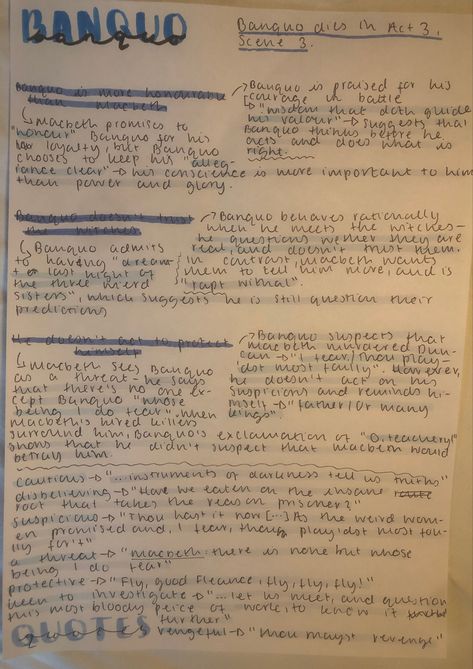 BANQUO
banquo
Banquo dies in Act 3,
Scene 3.
Banquo is more honourable
than macbeth
↳ Macbeth promises to
"honour" Banquo for his
loyalty, but Banquo
chooses to keep his "alleg-
iance clear" → his conscience is more important to him
than power and glory.
Banquo is praised for his
courage in battle
→ "wisdom that doth guide
his valour" → suggests that
Banquo thinks before he
acts and does what is
right.
Banquo doesn't trust
the witches
↳ Banquo admits
to having "dream-
t last night of
the three weird
sisters", which suggests he is still question their
predictions
Banquo behaves rationally
when he meets the witches-
he questions wether they are
real, and doesn't trust them.
in contrast, macbeth wants
them to tell him more, and is
"rapt withal".
He doesn't act to protect
himself
↳ Macbeth sees Banquo
as a threat - he says
that there's no one ex-
cept Banquo "whose
being I do fear". When
macbeth's hired killers
surround him, Banquo's exclamation of "O, treachery!"
shows that he didn't suspect that macbeth would
betray him.
Banquo suspects that
macbeth murdered Dun-
can → "I fear / Thou play-
idst most foully". However,
he doesn't act on his
suspicions and reminds hi-
mself → "father / Or many
kings".
cautious → "...instruments of darkness tell us truths"
disbelieving → "Have we eaten on the insane
root that takes the reason prisoner?"
suspicious → "Thou hast it now [...] As the weird wom-
en promised and, I fear, thou playidst most fou-
lly for't"
a threat → "macbeth: there is none but whose
being I do fear"
protective → "Fly, good Fleance, fly, fly, fly!"
keen to investigate → "...let us meet, and question
this most bloody peice of work, to know it
further"
QUOTES
quotes
vengeful → "Thou mayst revenge"